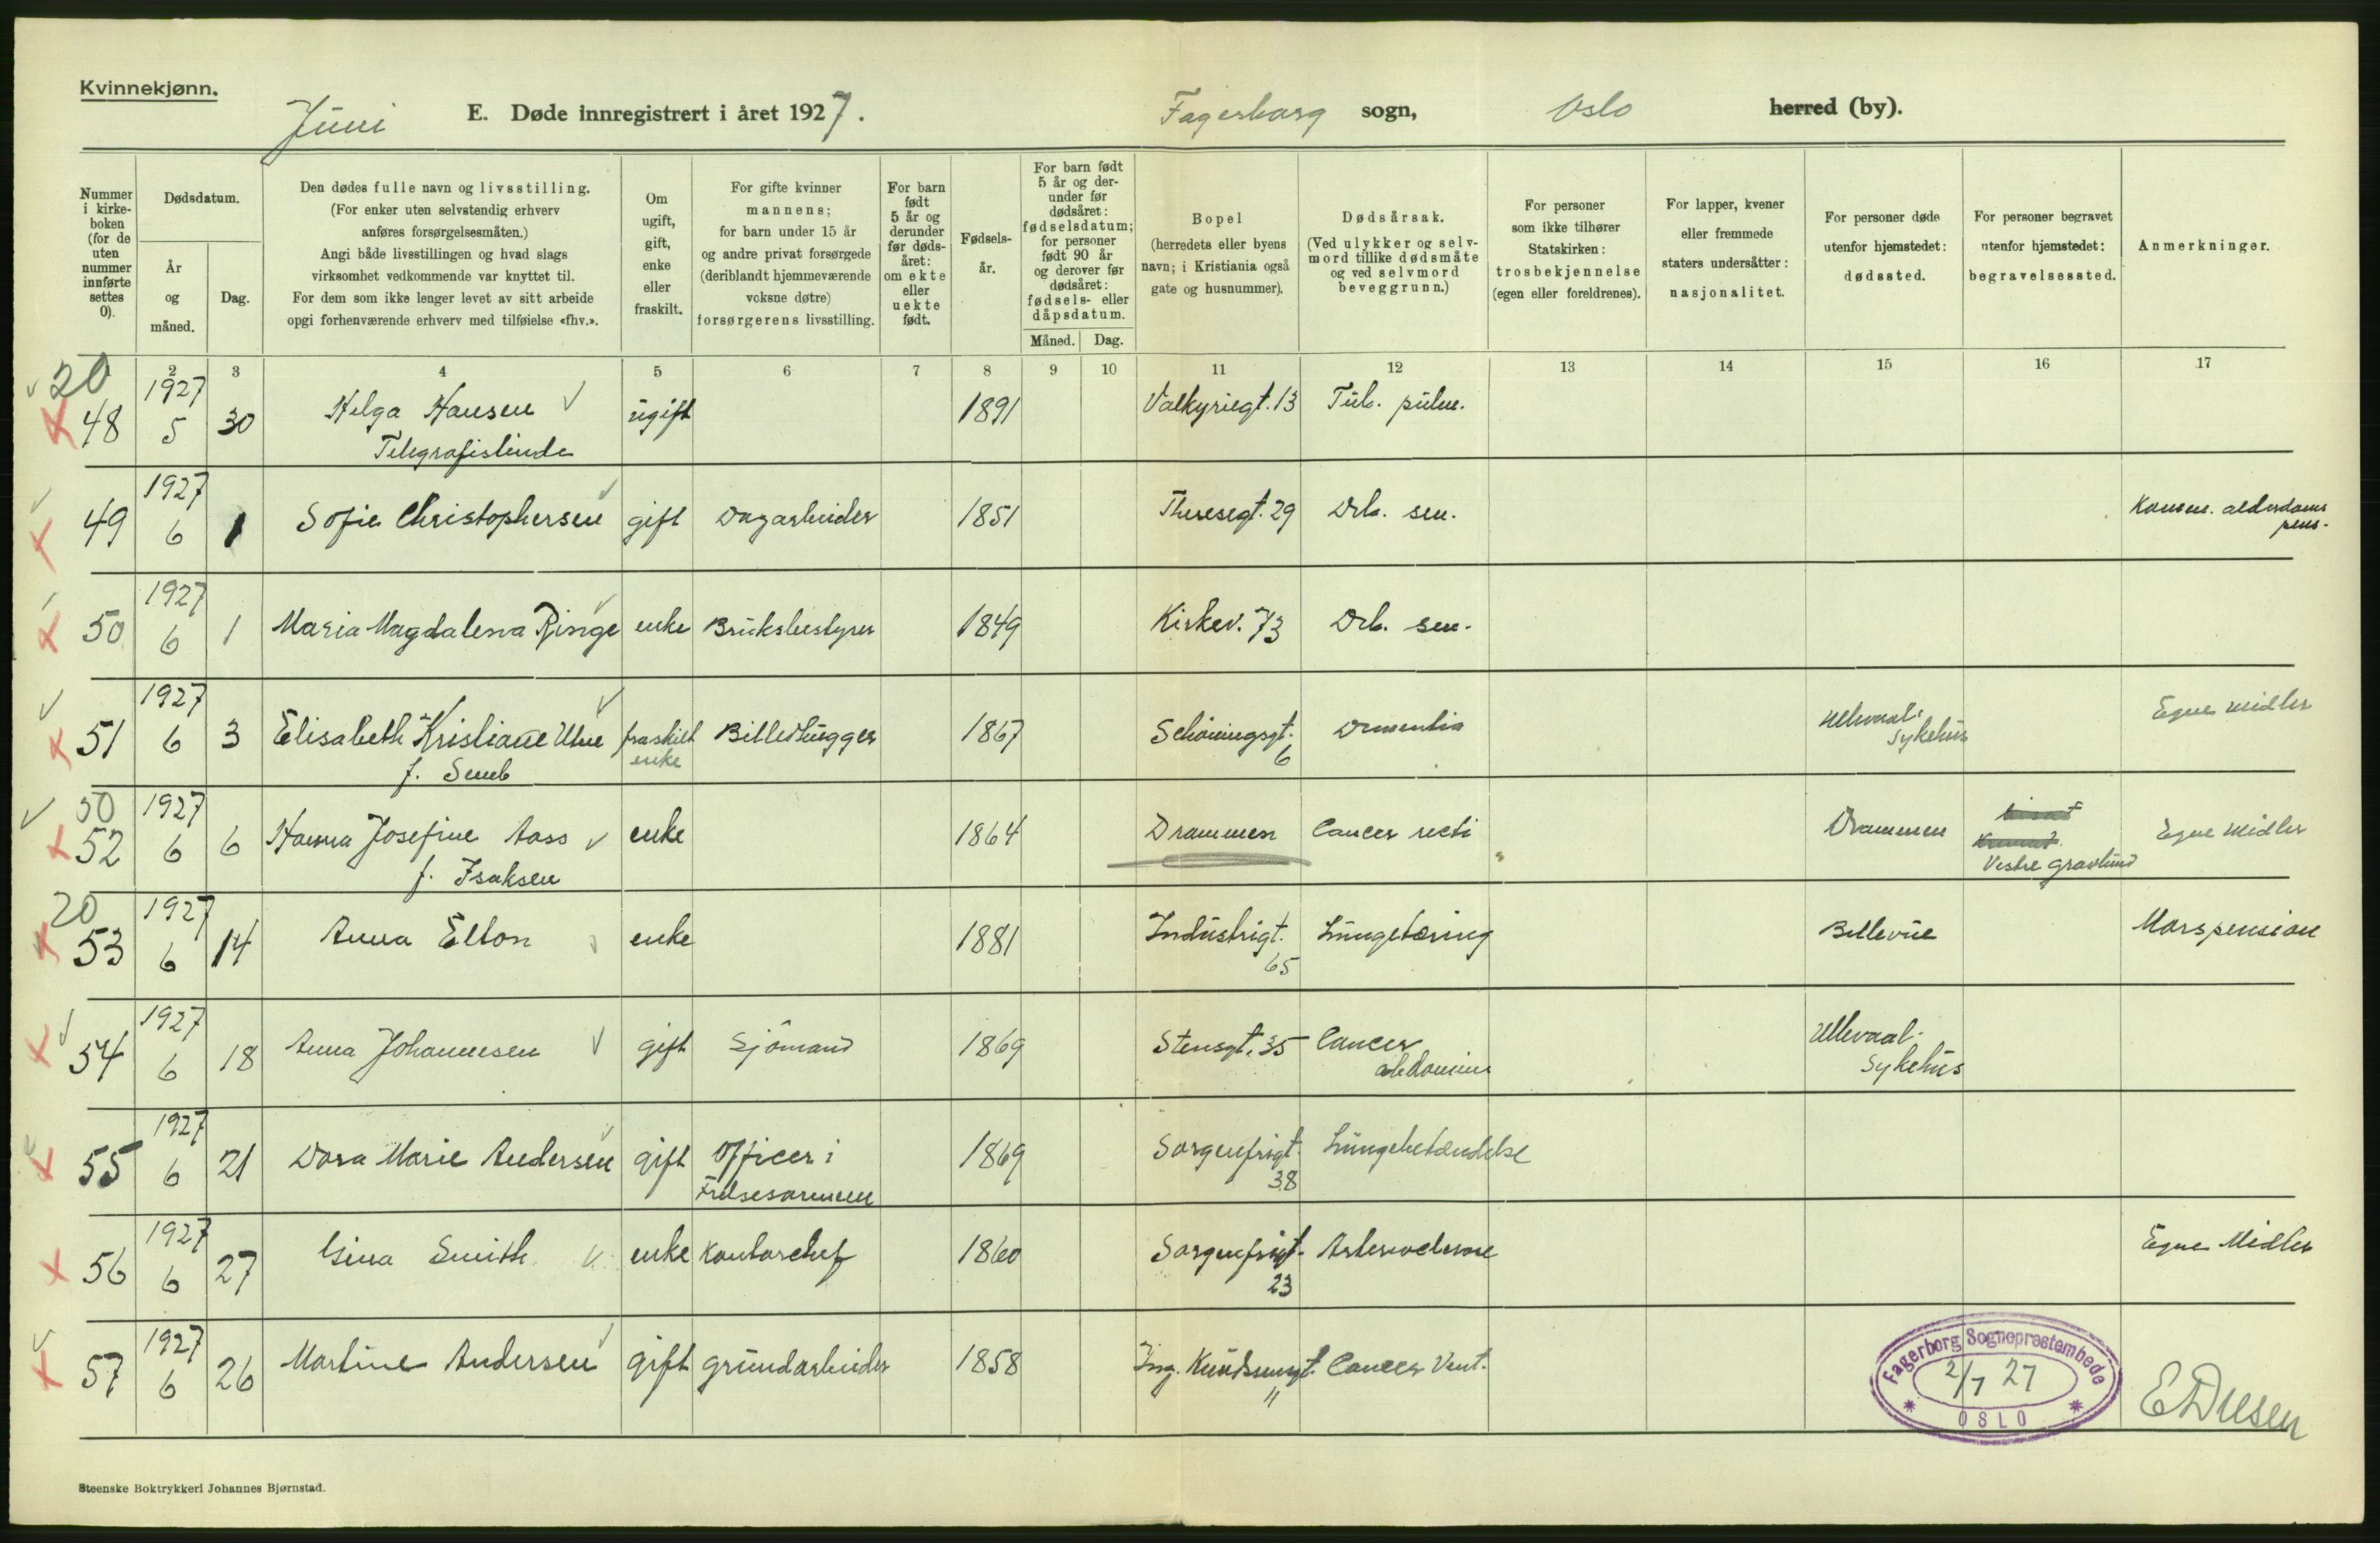 Kvinnekjønn.
Juni E. Døde innregistrert i året 1927. Fagerborg sogn, Oslo herred (by).
Nummer i kirke-boken (for de uten nummer innførte settes 0).
Dødsdatum.
År og måned.
Dag.
Den dødes fulle navn og livsstilling.
(For enker uten selvstendig erhverv
anføres forsørgelsesmåten.)
Angi både livsstillingen og hvad slags
virksomhet vedkommende var knyttet til.
For dem som ikke lenger levet av sitt arbeide
opgi forhenværende erhverv med tilføielse «fhv.».
Om
ugift,
gift,
enke
eller
fraskilt.
For gifte kvinner
mannens;
for barn under 15 år
og andre privat forsørgede
(deriblandt hjemmeværende
voksne døtre)
forsørgerens livsstilling.
For barn
født
5 år og
derunder
før døds-
året:
om ekte
eller
uekte
født.
Fødsels-
år.
For barn født
5 år og der-
under før
dødsåret:
fødselsdatum;
for personer
født 90 år
og derover før
dødsåret:
fødsels- eller
dåpsdatum.
Måned. Dag.
Bopel
(herredets eller byens
navn; i Kristiania også
gate og husnummer).
Dødsårsak.
(Ved ulykker og selv-
mord tillike dødsmåte
og ved selvmord
beveggrunn.)
For personer
som ikke tilhører
Statskirken:
trosbekjennelse
(egen eller foreldrenes).
For lapper, kvener
eller fremmede
staters undersåtter:
nasjonalitet.
For personer døde
utenfor hjemstedet:
dødssted.
For personer begravet
utenfor hjemstedet:
begravelsessted.
Anmerkninger.
2 3 4 5 6 7 8 9 10 11 12 13 14 15 16 17
20
48 1927 5 30 Helga Hansen ugift 1891 Valkyriegt. 13 Tub. pulm.
Telegrafistinde
49 1927 6 1 Sofie Christophersen gift Dagarbeider 1851 Theresegt. 29 Deb. sen. Komm. alderdoms
pens.
50 1927 6 1 Maria Magdalena Ringe enke Bruksbestyrer 1849 Kirkev. 73 Deb. sen.
51 1927 6 3 Elisabeth Kristiane Utne fraskilt Billedhugger 1867 Schøningsgt. 6 Dementia Ullevaal Sykehus Egne midler
f. Semb enke
50
52 1927 6 6 Hanna Josefine Aass enke 1864 Drammen Cancer recti Drammen Vestre gravlund Egne midler
f. Isaksen
20
53 1927 6 14 Anna Elton enke 1881 Industrigt. 65 Lungetæring Bellevue Morspension
54 1927 6 18 Anna Johannesen gift Sjømand 1869 Stensgt. 35 Cancer abdominis Ullevaal Sykehus
55 1927 6 21 Dora Marie Andersen gift Officer i 1869 Sorgenfrigt. 38 Lungebetændelse
Frelsesarmeen
56 1927 6 27 Gina Smith enke Kontorchef 1860 Sorgenfrigt. 23 Egne Midler
57 1927 6 26 Martine Andersen gift grundarbeider 1858 Ing. Knudsensgt. 11 Cancer Vent.
Fagerborg Sogneprestembede
2/7 27
OSLO
Steenske Boktrykkeri Johannes Bjørnstad.